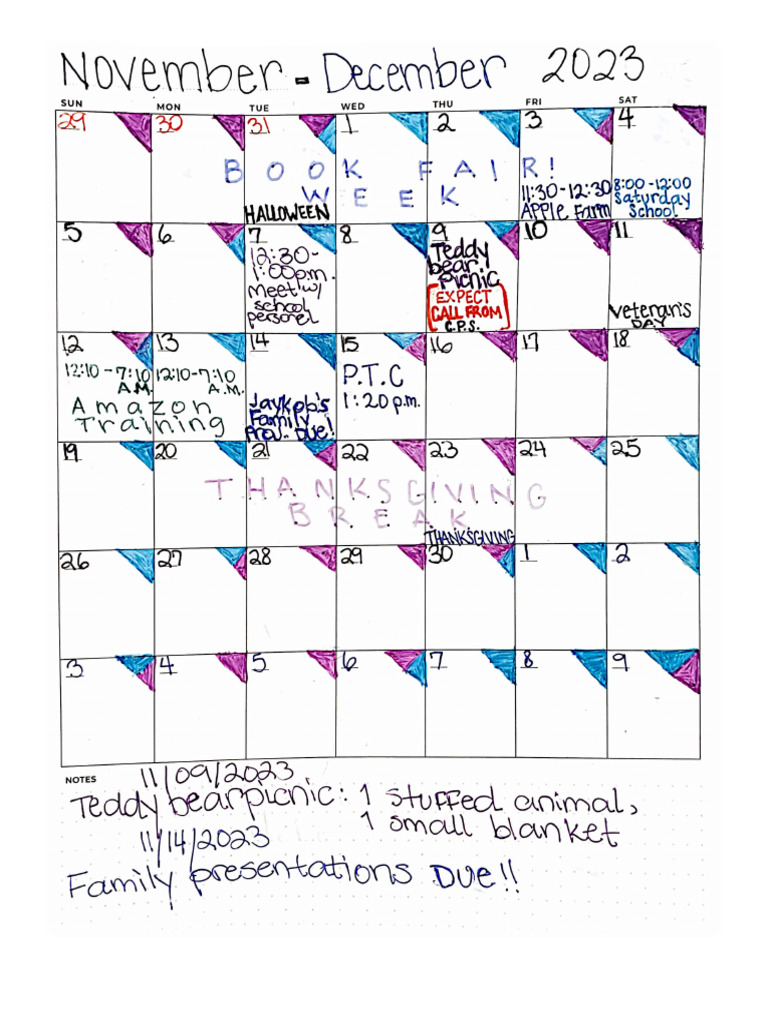 November - December 2023
SUN MON TUE WED THU FRI SAT
29 30 31 1 2 3 4
BOOK FAIR!
WEEK
HALLOWEEN
11:30-12:30
Apple Farm
8:00-12:00
Saturday
School
5 6 7 8 9 10 11
12:30-
1:00p.m.
Meet w/
school
personel
Teddy
bear
Picnic
EXPECT
CALL FROM
C.P.S.
Veteran's
DAY
12 13 14 15 16 17 18
12:10-7:10
A.M.
12:10-7:10
A.M.
Amazon
Training
Jaykob's
Family
Prov.. Due!
P.T.C
1:20 p.m.
19 20 21 22 23 24 25
THANKSGIVING
BREAK
THANKSGIVING
26 27 28 29 30 1 2
3 4 5 6 7 8 9
NOTES
11/09/2023
Teddy bear picnic: 1 stuffed animal,
1 small blanket
11/14/2023
Family presentations Due!!